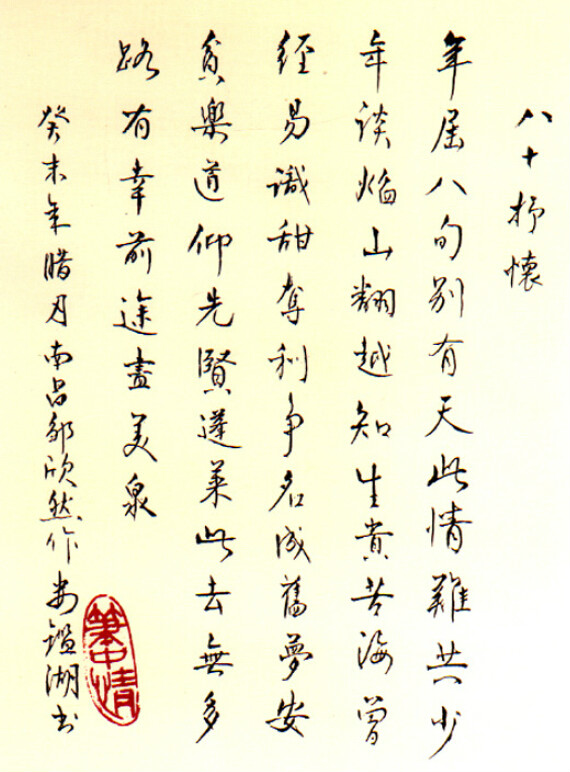 八十抒懷
年屆八旬别有天此情難共少
年談焰山翻越知生貴苦海曾
經易識甜奪利爭名成舊夢安
貧樂道仰先賢蓬萊此去無多
路有幸前途盡美泉
癸未年腊月南昌邹欣然作 鑑湖书
筆中情